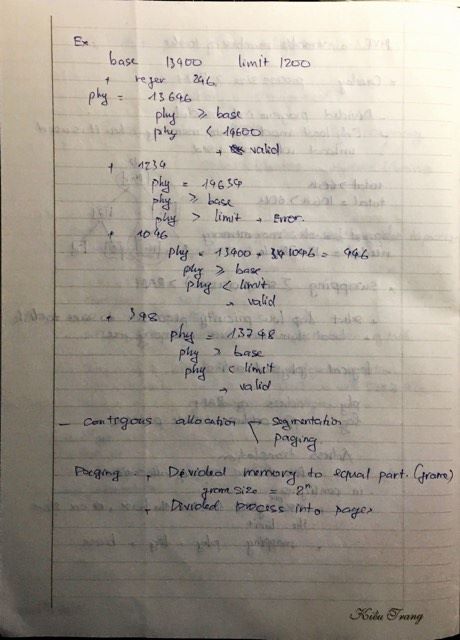 Ex
base 13400 limit 1200
+ reger 246
phy = 13646
phy ≥ base
phy < 14600
→ valid
+ 1234
phy = 14634
phy ≥ base
phy > limit → Error
+ 1046
phy = 13400 + 1046 = 446
phy ≥ base
phy < limit
→ valid
+ 348
phy = 13748
phy > base
phy < limit
→ valid
- contigous allocation segmentation
paging
Paging = + Divided memory to equal part. (frame)
frame size = 2ⁿ
+ Divided process into pages
Kiều Trang